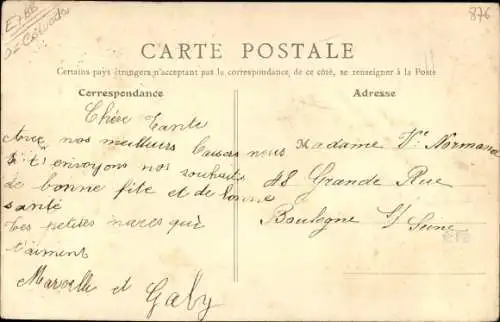 E786
02 - Calvados
876
CARTE POSTALE
Certains pays étrangers n'acceptant pas la correspondance de ce côté, se renseigner à la Poste
Correspondance
Adresse
Chère Tante
Avec nos meilleurs baisers nous
t'envoyons nos souhaits
de bonne fête et de bonne
santé
Tes petites nièces qui
t'aiment
Marcelle et Gaby
Madame Vve Normand
48 Grande Rue
Boulogne s/ Seine